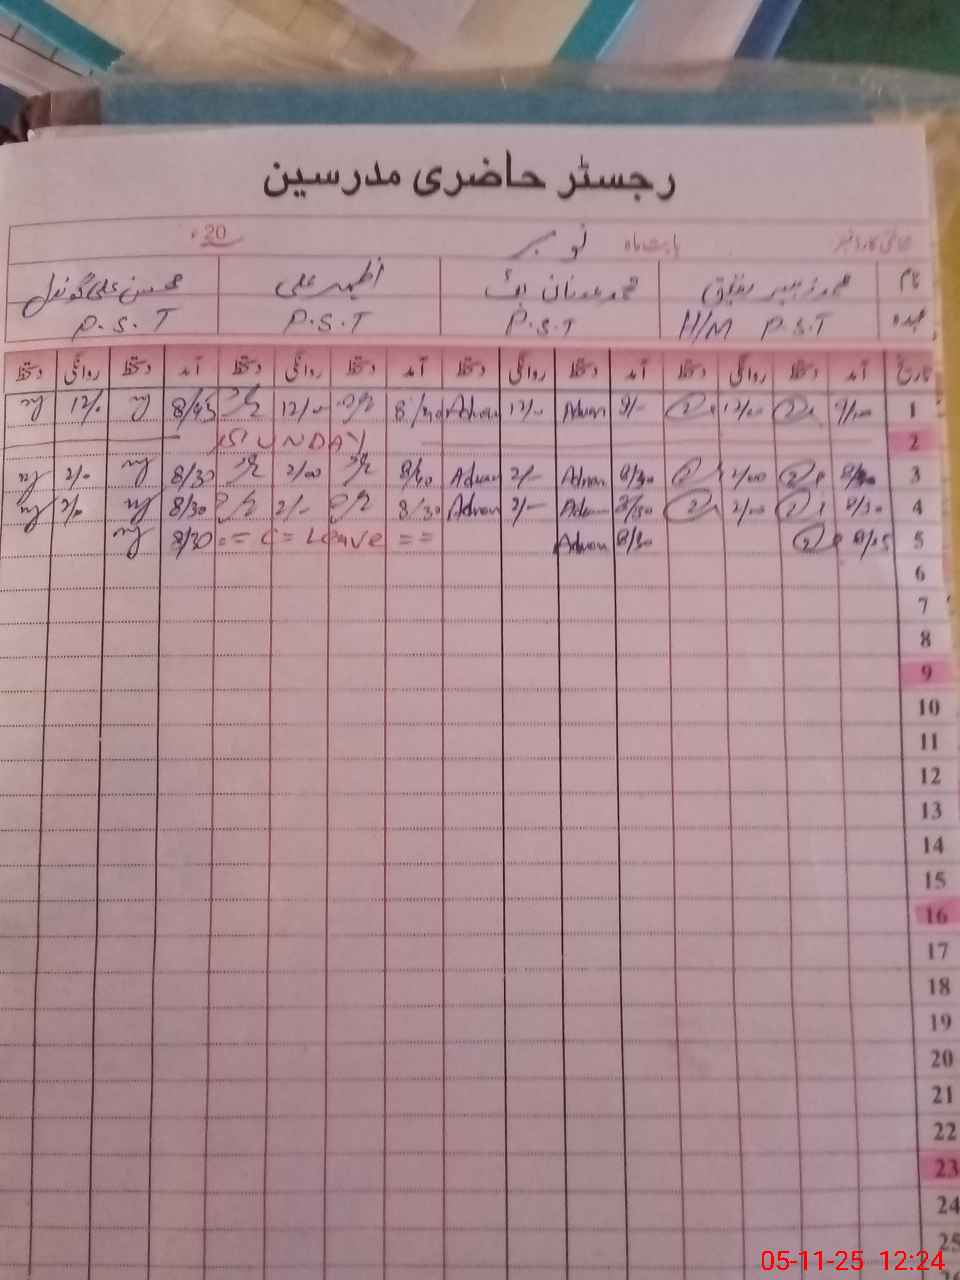 رجسٹر حاضری مدرسین
بابت ماہ نومبر 20ء
نام محمد زبیر محمد عدنان اظہر علی محسن علی گوندل
عہدہ H/M P.S.T P.S.T P.S.T P.S.T
تاریخ آمد دستخط روانگی دستخط آمد دستخط روانگی دستخط آمد دستخط روانگی دستخط آمد دستخط روانگی دستخط
1 9/00 12/00 9/- Adnan 12/- Adnan 8/40 12/00 8/45 12/0
2 SUNDAY
3 2/00 8/30 Adnan 2/- Adnan 8/40 2/00 8/30 2/0
4 8/30 2/00 8/30 Adnan 2/- Adnan 8/30 2/- 8/30 2/0
5 8/25 8/30 Adnan = C = Leave = = 8/30
6
7
8
9
10
11
12
13
14
15
16
17
18
19
20
21
22
23
24
25
05-11-25 12:24